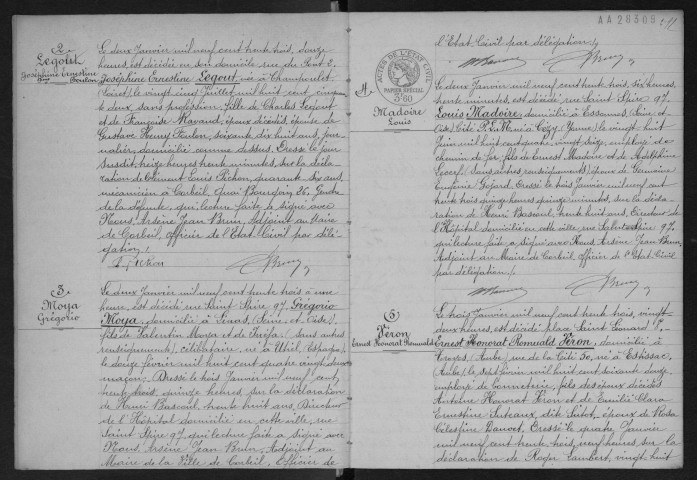 2
Legout
Joséphine Ernestine
Vve Foulon
Le deux Janvier mil neuf cent trente trois, douze
heures, est décédée en son domicile rue du Pont 2,
Joséphine Ernestine Legout, née à Champoulet
(Loiret) le vingt cinq Juillet mil huit cent cinquante
deux, sans profession, fille de Charles Legout
et de Françoise Mavaud, époux décédés, épouse de
Gustave Henri Foulon, soixante dix huit ans, journalier,
domicilié comme dessus. Dressé le jour
susdit, treize heures trente minutes, sur la déclaration
de Clément Louis Pichon, quarante six ans,
mécanicien à Corbeil, Quai Bourgoin, 26, Gendre
de la défunte, qui, lecture faite, a signé avec
Nous, Arsène Jean Brun, Adjoint au Maire
de Corbeil, Officier de l'Etat Civil par délégation
3
Moya
Grégorio
Le deux Janvier mil neuf cent trente trois à une
heure, est décédé rue Saint Spire 97, Grégorio
Moya, domicilié à (Seine et Oise),
fils de Valentin Moya et de (sans autres
renseignements), célibataire, né à Utiel (Espagne),
le douze février mil huit cent quatre vingt
maçon, Dressé le trois Janvier mil neuf cent
trente trois, quinze heures sur la déclaration
de Henri Bascoul, trente huit ans, Directeur
de l'Hôpital domicilié en cette ville, rue
Saint Spire 97, qui lecture faite a signé avec
Nous Arsène Jean Brun, Adjoint au
Maire de la Ville de Corbeil, Officier de
AA28309
l'Etat Civil par délégation
4
ACTES DE L'ETAT CIVIL
PAPIER SPECIAL
3f60
Madoire
Louis
Le deux Janvier mil neuf cent trente trois, six heures,
trente minutes, est décédé rue Saint Spire 97,
Louis Madoire, domicilié à Essonnes (Seine et
Oise) Cité P.L.M. né à Cézy (Yonne) le vingt huit
Juin mil huit cent quatre vingt seize, employé de
chemin de fer, fils de Ernest Madoire et de Adelphine
(sans autres renseignements), époux de Germaine
Eugénie Dressé le trois Janvier mil neuf cent
trente trois quinze heures quinze minutes, sur la déclaration
de Henri Bascoul, trente huit ans, Directeur de
l'Hôpital domicilié en cette ville, rue Saint Spire 97,
qui lecture faite, a signé avec Nous Arsène Jean Brun,
Adjoint au Maire de Corbeil officier de l'Etat Civil
par délégation
5
Véron
Ernest Honorat Romuald
Le trois Janvier mil neuf cent trente trois, vingt
deux heures, est décédé place Saint Léonard
Ernest Honorat Romuald Véron, domicilié à
Troyes (Aube), rue de la Cité 50, né à Estissac,
(Aube), le sept février mil huit cent soixante douze,
employé de bonneterie, fils des époux décédés
Antoine Honorat Véron et de Emilie Clara
Ernestine dit époux de
Célestine Dressé le quatre Janvier
mil neuf cent trente trois, neuf heures sur la
déclaration de Roger Lambert, vingt huit